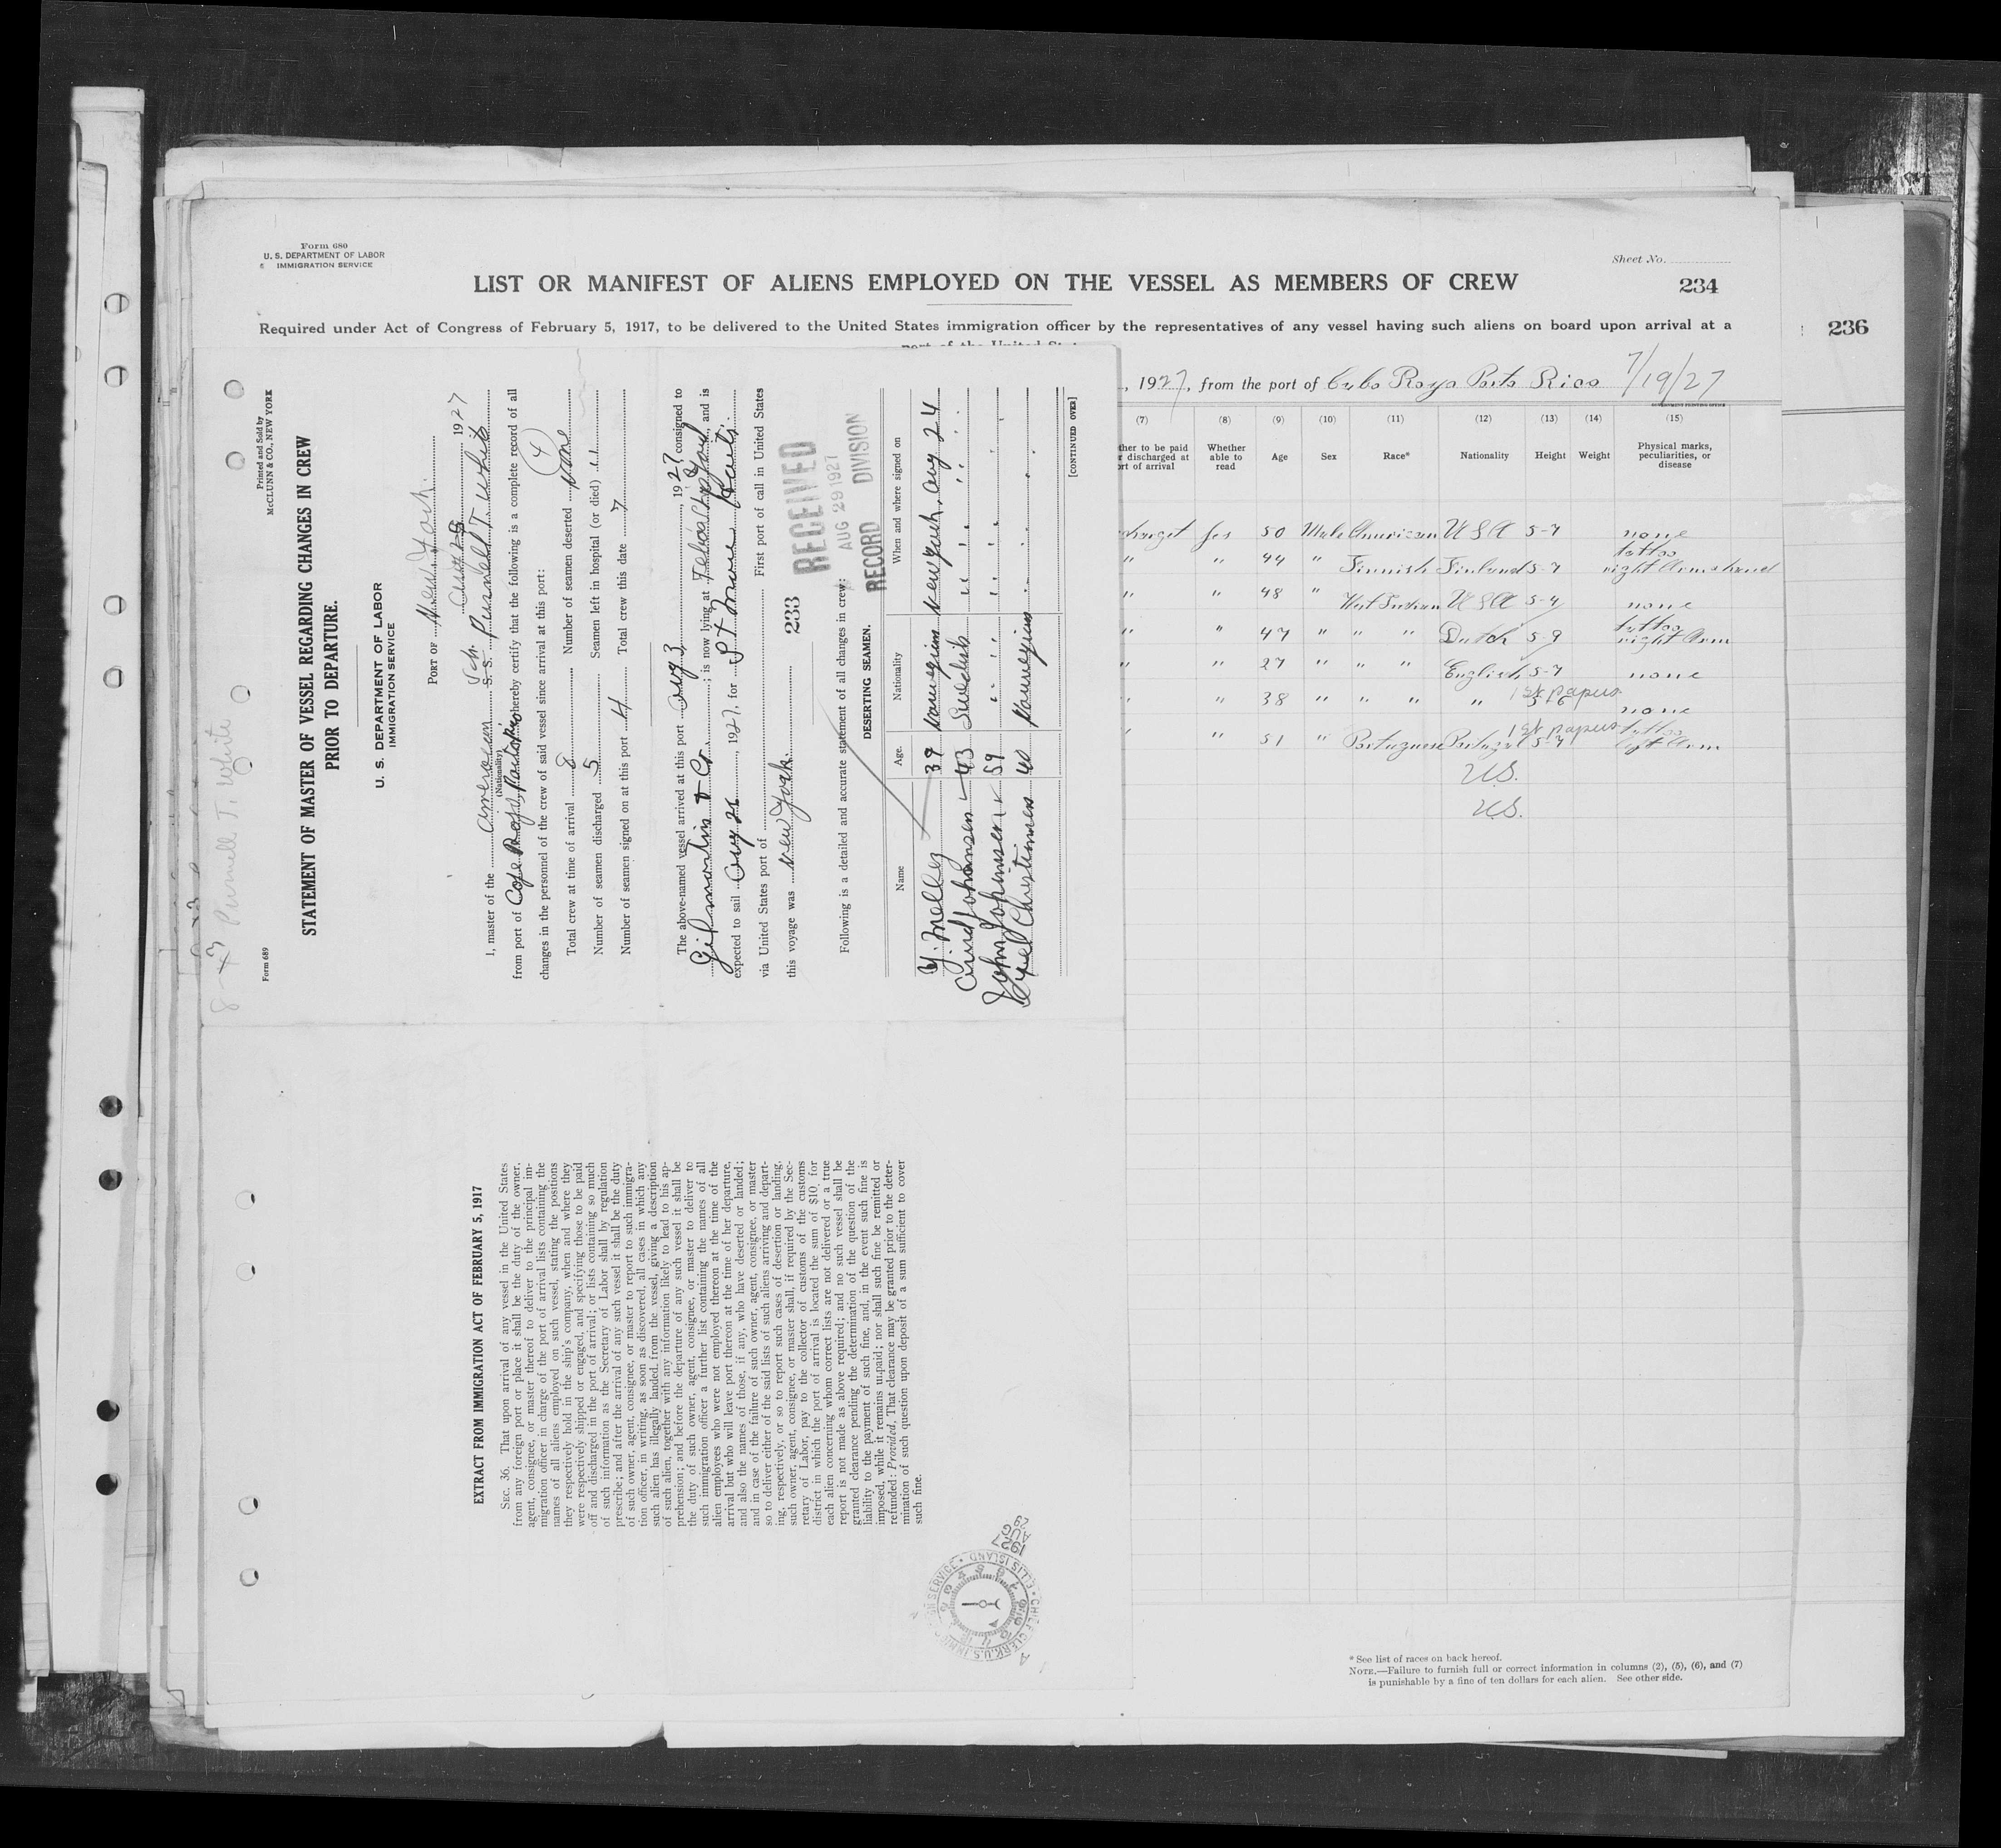 Form 680
U. S. DEPARTMENT OF LABOR
IMMIGRATION SERVICE
Sheet No.
LIST OR MANIFEST OF ALIENS EMPLOYED ON THE VESSEL AS MEMBERS OF CREW
234
Required under Act of Congress of February 5, 1917, to be delivered to the United States immigration officer by the representatives of any vessel having such aliens on board upon arrival at a
236
, 1927, from the port of Porto Rico 7/19/27
(7) (8) (9) (10) (11) (12) (13) (14) (15)
ther to be paid
discharged at
rt of arrival
Whether
able to
read
Age
Sex
Race*
Nationality
Height
Weight
Physical marks,
peculiarities, or
disease
yes 50 Male American USA 5-7 none
" " 44 " Finnish Finland 5-7 tattoo right Arm & hand
" " 48 " West Indian USA 5-4 none
" " 47 " " " Dutch 5-9 tattoo right Arm
" " 27 " " " English 5-7 none
" " 38 " " " " 1st papers none
" " 51 " Portuguese Portugal 1st papers 5-7 tattoo left Arm
US.
US.
* See list of races on back hereof.
NOTE.—Failure to furnish full or correct information in columns (2), (5), (6), and (7)
is punishable by a fine of ten dollars for each alien. See other side.
8-+3 Purnell T. White
Form 689
Printed and Sold by
McCLUNN & CO., NEW YORK
STATEMENT OF MASTER OF VESSEL REGARDING CHANGES IN CREW
PRIOR TO DEPARTURE.
U. S. DEPARTMENT OF LABOR
IMMIGRATION SERVICE
PORT OF New York.
1927
I, master of the American Sch. S. S. Purnell T White
(Nationality)
from port of hereby certify that the following is a complete record of all
changes in the personnel of the crew of said vessel since arrival at this port: (4)
Total crew at time of arrival 8 Number of seamen deserted none
Number of seamen discharged 5 Seamen left in hospital (or died) "
Number of seamen signed on at this port 4 Total crew this date 7
The above-named vessel arrived at this port Aug 3, 1927, consigned to
Gilmartin & Co.; is now lying at , and is
expected to sail Aug 26, 1927, for St Marc Haiti.
via United States port of First port of call in United States
this voyage was New York. 233
RECEIVED
AUG 29 1927
RECORD DIVISION
Following is a detailed and accurate statement of all changes in crew:
DESERTING SEAMEN.
Name Age. Nationality When and where signed on
39 Norwegian New York. Aug 24
Johansen 43 Swedish " " " "
John Johnsen 59 " " " " " "
Christiansen 40 Norwegian " " " "
[CONTINUED OVER]
EXTRACT FROM IMMIGRATION ACT OF FEBRUARY 5, 1917
SEC. 36. That upon arrival of any vessel in the United States
from any foreign port or place it shall be the duty of the owner,
agent, consignee, or master thereof to deliver to the principal im-
migration officer in charge of the port of arrival lists containing the
names of all aliens employed on such vessel, stating the positions
they respectively hold in the ship's company, when and where they
were respectively shipped or engaged, and specifying those to be paid
off and discharged in the port of arrival; or lists containing so much
of such information as the Secretary of Labor shall by regulation
prescribe; and after the arrival of any such vessel it shall be the duty
of such owner, agent, consignee, or master to report to such immigra-
tion officer, in writing, as soon as discovered, all cases in which any
such alien has illegally landed from the vessel, giving a description
of such alien, together with any information likely to lead to his ap-
prehension; and before the departure of any such vessel it shall be
the duty of such owner, agent, consignee, or master to deliver to
such immigration officer a further list containing the names of all
alien employees who were not employed thereon at the time of the
arrival but who will leave port thereon at the time of her departure,
and also the names of those, if any, who have deserted or landed;
and in case of the failure of such owner, agent, consignee, or master
so to deliver either of the said lists of such aliens arriving and depart-
ing, respectively, or so to report such cases of desertion or landing,
such owner, agent, consignee, or master shall, if required by the Sec-
retary of Labor, pay to the collector of customs of the customs
district in which the port of arrival is located the sum of $10 for
each alien concerning whom correct lists are not delivered or a true
report is not made as above required; and no such vessel shall be
granted clearance pending the determination of the question of the
liability to the payment of such fine, and, in the event such fine is
imposed, while it remains unpaid; nor shall such fine be remitted or
refunded: Provided, That clearance may be granted prior to the deter-
mination of such question upon deposit of a sum sufficient to cover
such fine.
1927
AUG
29
CHIEF CLERK, U.S. IMMIGRATION SERVICE • ELLIS ISLAND